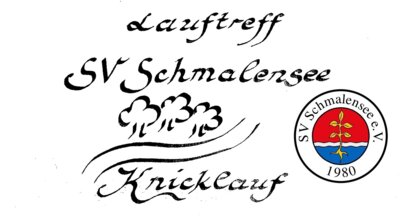 Lauftreff
SV Schmalensee
Knicklauf
SV Schmalensee e.V.
1980